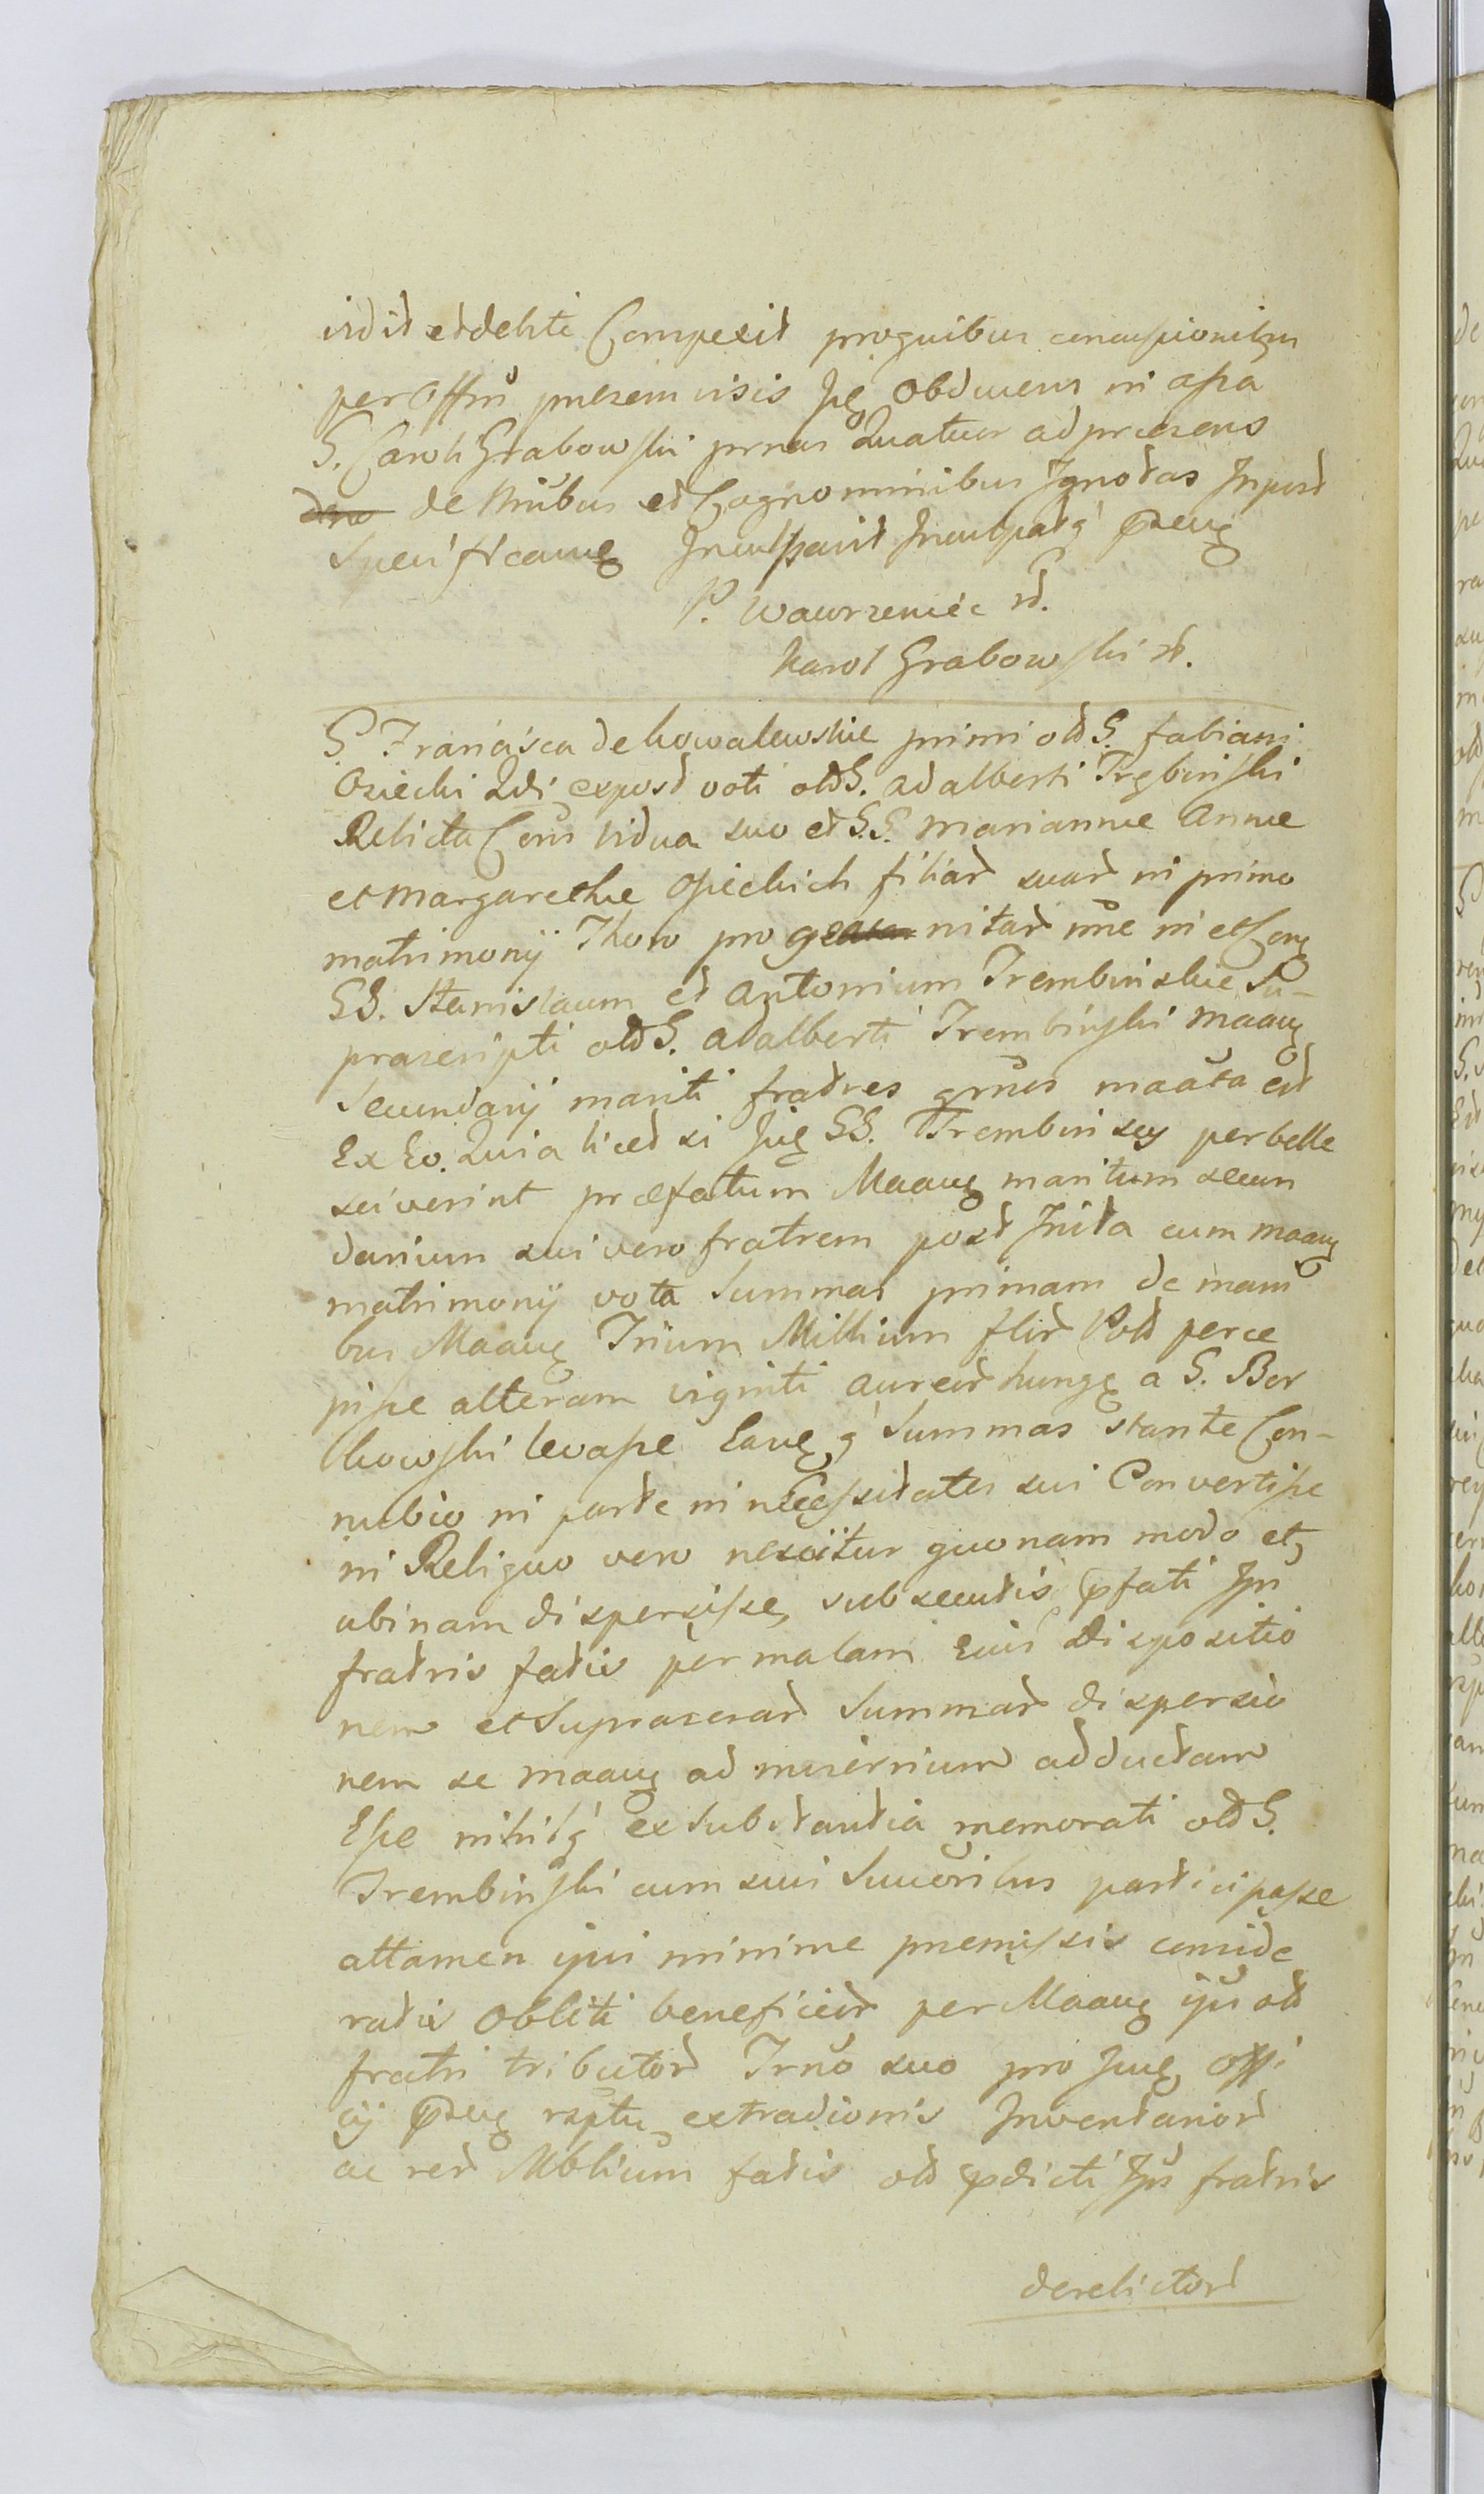 vidit et delite Compexit pro quibus concussionibus
per Offm̃ praesen visis Jpę Obducens in assa
G. Caroli Grabowski prnas Quatuor ad praesens
de Nnibus et Cognominibus Ignotas In post
Specificanę Inculpavit Inculpatq́ pseuę
P. Wawrzeniec st.
Karol Grabowski st.
G. Francisca de Kowalewskie primi olt G. Fabiani
Osiecki 2di expost voti olt G. Adalberti Trębinski
Relicta Cons vidua suo et G.G. Mariannae Annae
et Margarethae Osieckich filiar suar in primo
matrimonÿ Thoro pro nitar nne in et Conę
GG. Stanislaum et Antonium Trembinskie Su-
prascripti olt G. Adalberti Trembinski Maanę
Secundarÿ mariti fratres grnus maata est
Ex Eo. Quia licet si Juę GG. Trembinscy perbelle
sciverint praefatum Maanę maritum secun
darium sui vero fratrem post Inita cum maanę
matrimonÿ vota Summas primam de mani
bus Maanę Trium Millium flor Polt perce
pisse alteram viginti Aureor hungę a G. Bor
kowski levasse Easę q́ Summas stante Con-
nubio in parte in necessitates sui Convertisse
in Reliquo vero nescitur quonam modo et
ubinam dispersisse, subsecutis pfati Jpi
fratris fatis per malam Eius dispositio
nem et Supraserar Summar dispersio
nem se maanę ad miserrium adductam
Esse nihilq́ ex Substantia memorati olt G.
Trembinski cum suis Sucoribus participasse
attamen ipsi minime praemissis conside
ratis Obliti beneficior per Maanę ipsi olt
fratri tributor Trno suo pro Juę Offi
cÿ pseuę rsptu extradionis Inventarior
ac rer Mblium fatis olt pdicti Jpi fratris
derelictor